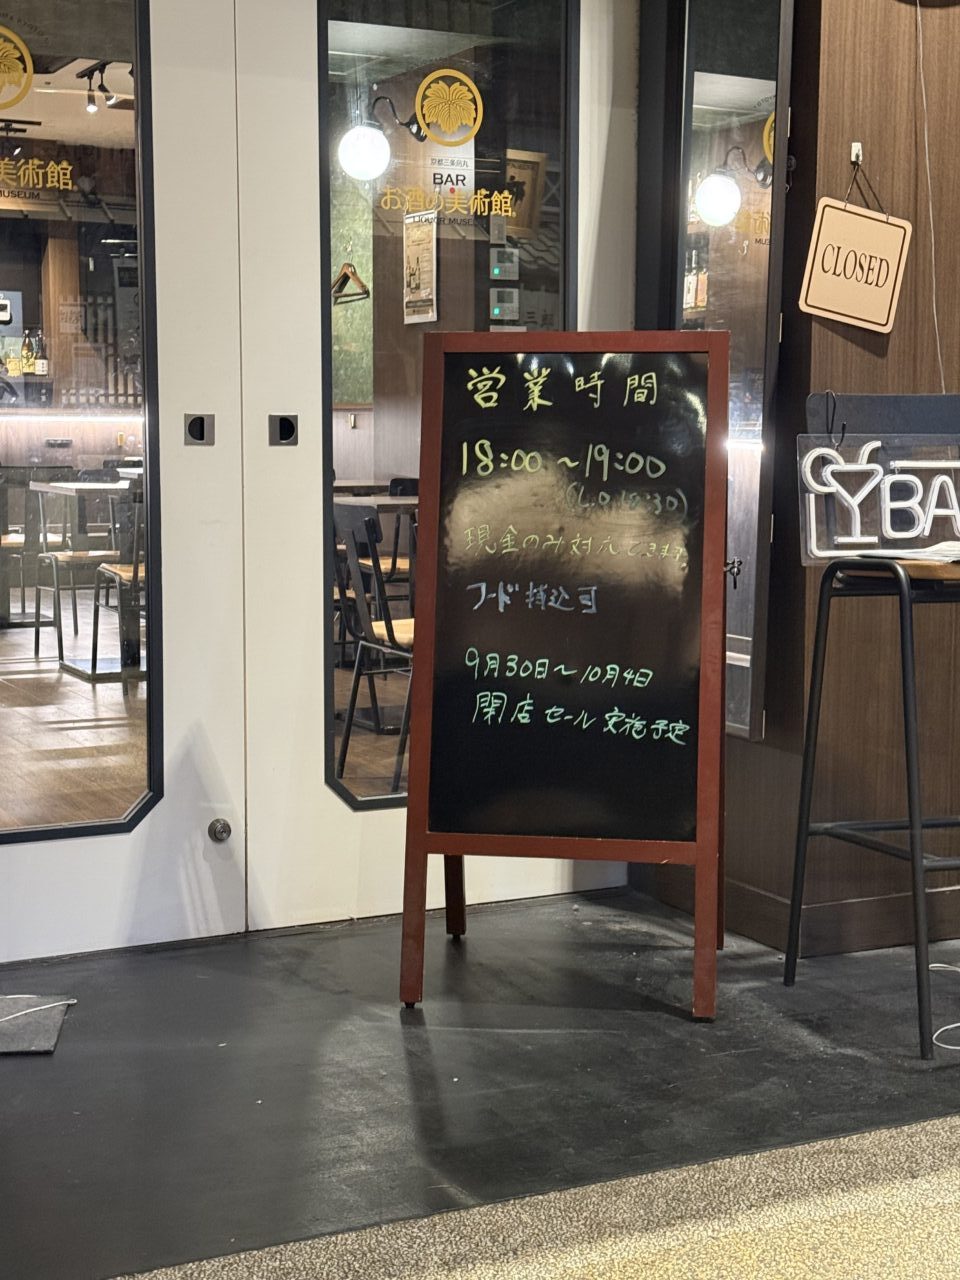 美術館
MUSEUM
京都三条烏丸
BAR
お酒の美術館
LIQUOR MUSEUM
CLOSED
営業時間
18:00~19:00
(L.O 18:30)
現金のみ対応できます
フード持込可
9月30日~10月4日
閉店セール実施予定
BA